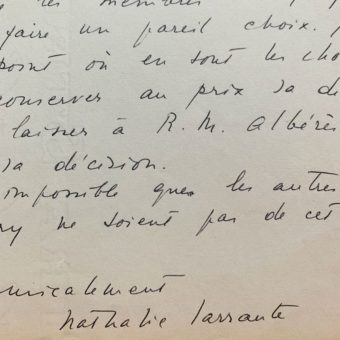 les membres
faire un pareil choix.
point où en sont les cho
conserver au prix sa de
laisser à R. M. Albérès
sa décision.
impossible que les autres
ry ne soient pas de cet
micalement
nathalie sarraute